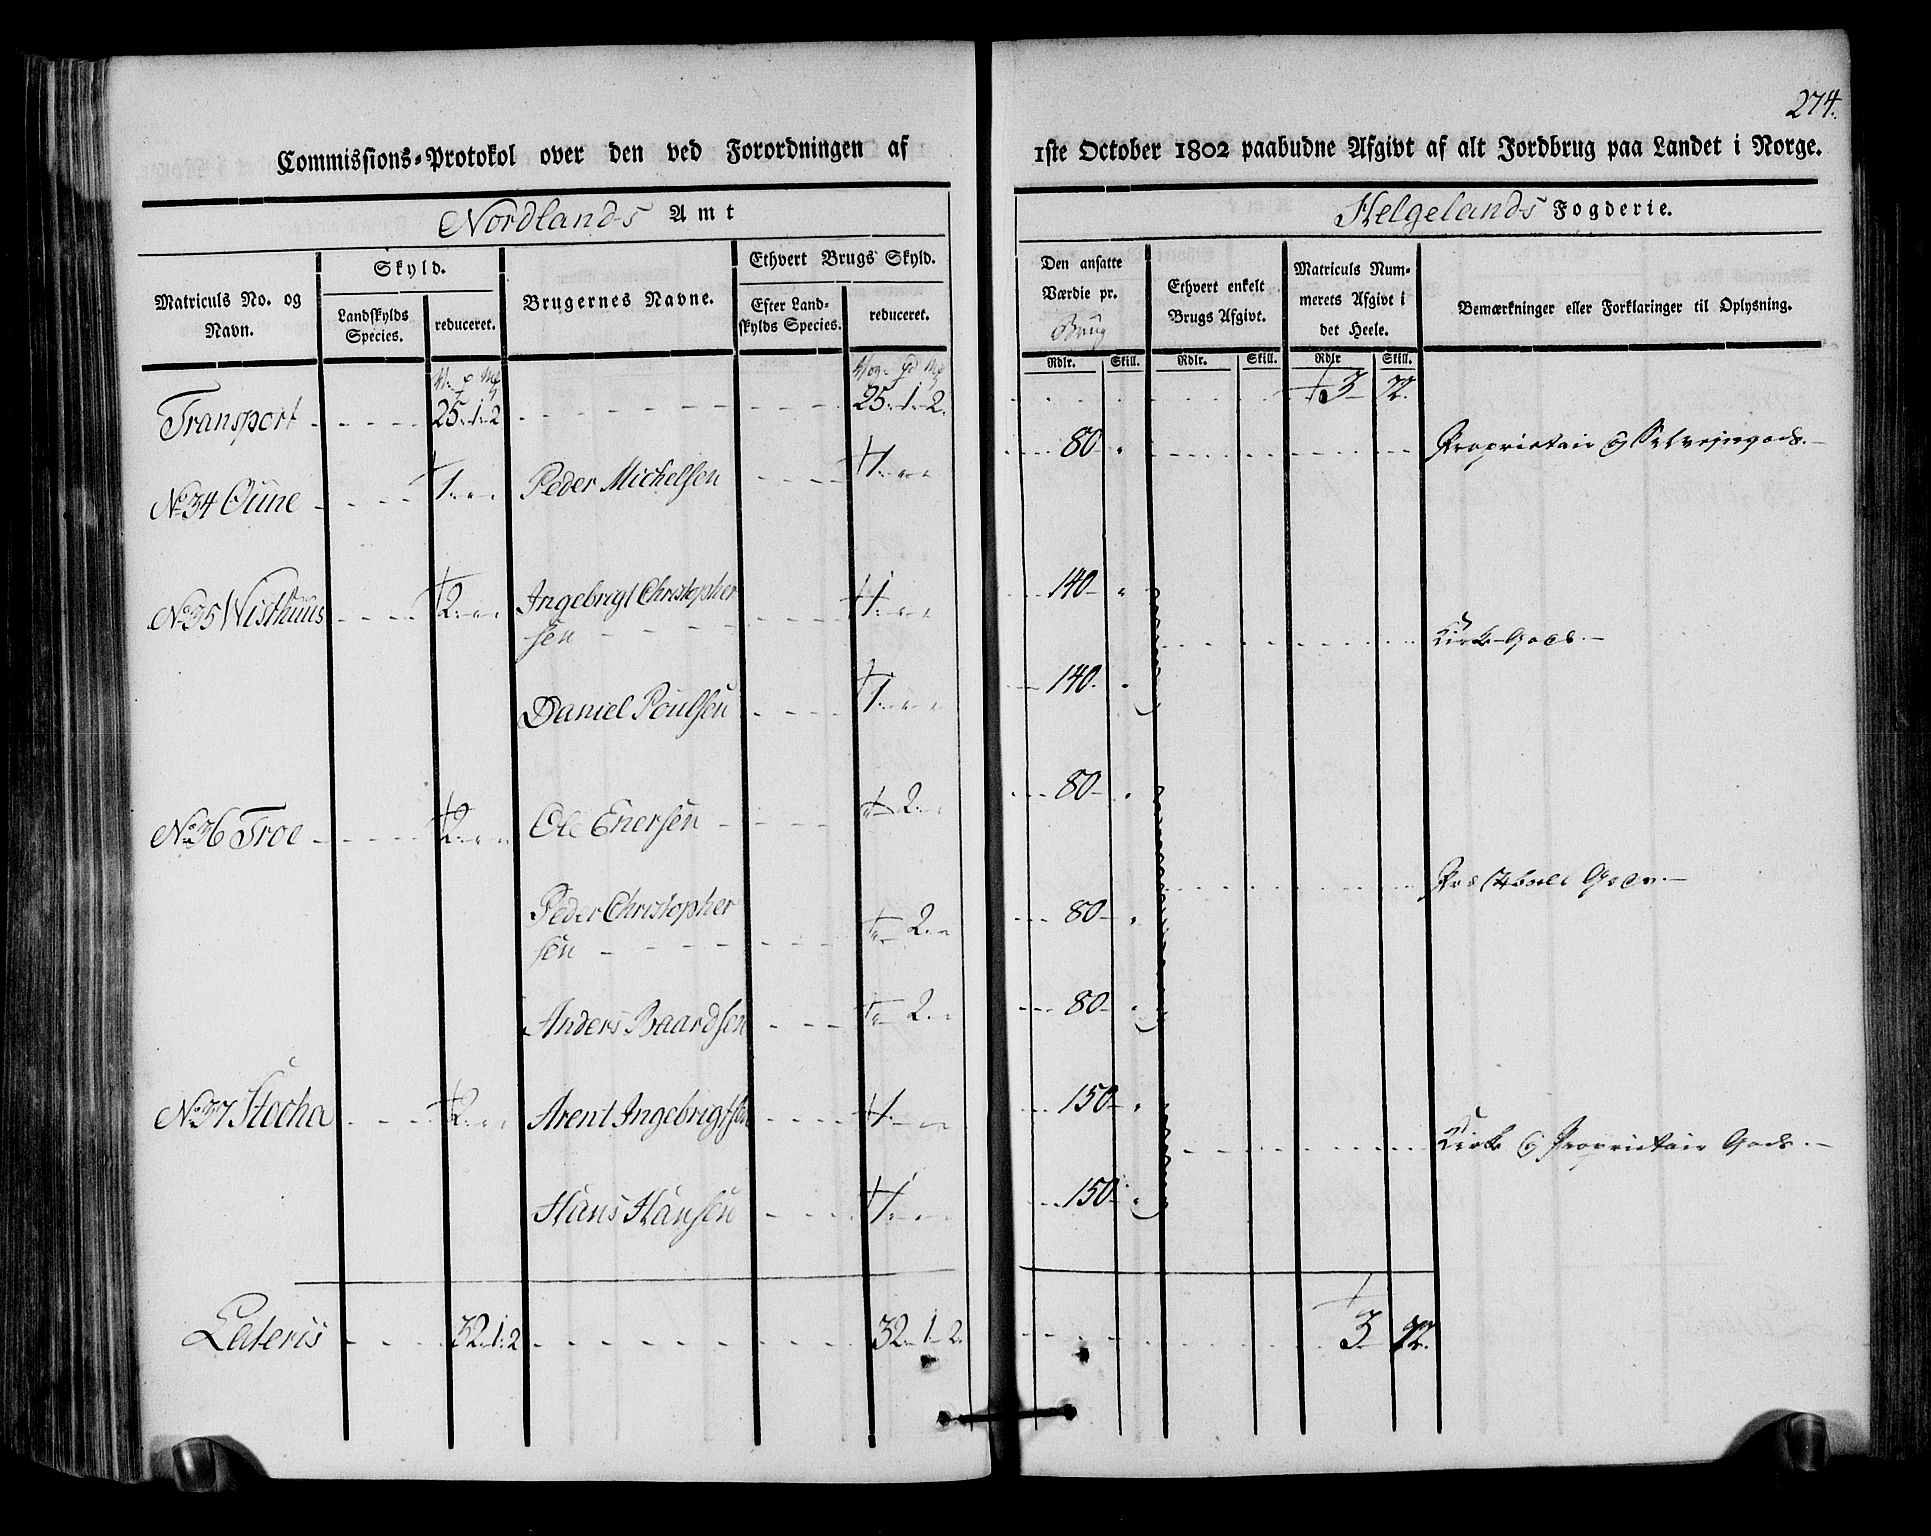 274.
Commissions-Protokol over den ved Forordningen af 1ste October 1802 paabudne Afgivt af alt Jordbrug paa Landet i Norge.
Nordlands Amt
Helgelands Fogderie.
Matriculs No. og Navn.
Skyld.
Landskylds Species.
reduceret.
Brugernes Navne.
Ethvert Brugs Skyld.
Efter Landskylds Species.
reduceret.
Den ansatte Værdie pr. Brug
Rdlr. Skill.
Ethvert enkelt Brugs Afgivt.
Rdlr. Skill.
Matriculs Nummerets Afgivt i det Heele.
Rdlr Skill.
Bemærkninger eller Forklaringer til Oplysning.
Transport 25. 1. 2 25. 1. 2. 3 72.
No 34 Oune 1. Peder Michelsen 1. 80 Proprietair og Selveiergods.
No 35 Wisthuus 2. Ingebrigt Christophersen 1. 140
Kirke-Gods.
Daniel Poulsen 1. 140.
No 36 Troe 2. Ole Enersen 2. 80
Præstebolle Gods.
Peder Christophersen 2. 80
Anders Baardsen 2. 80
No 37 Stocha 2. Arent Ingebrigtsen 1. 150
Kirke og Proprietair Gods.
Hans Hansen 1. 150
Lateris 32. 1. 2 32. 1. 2. 3 72.